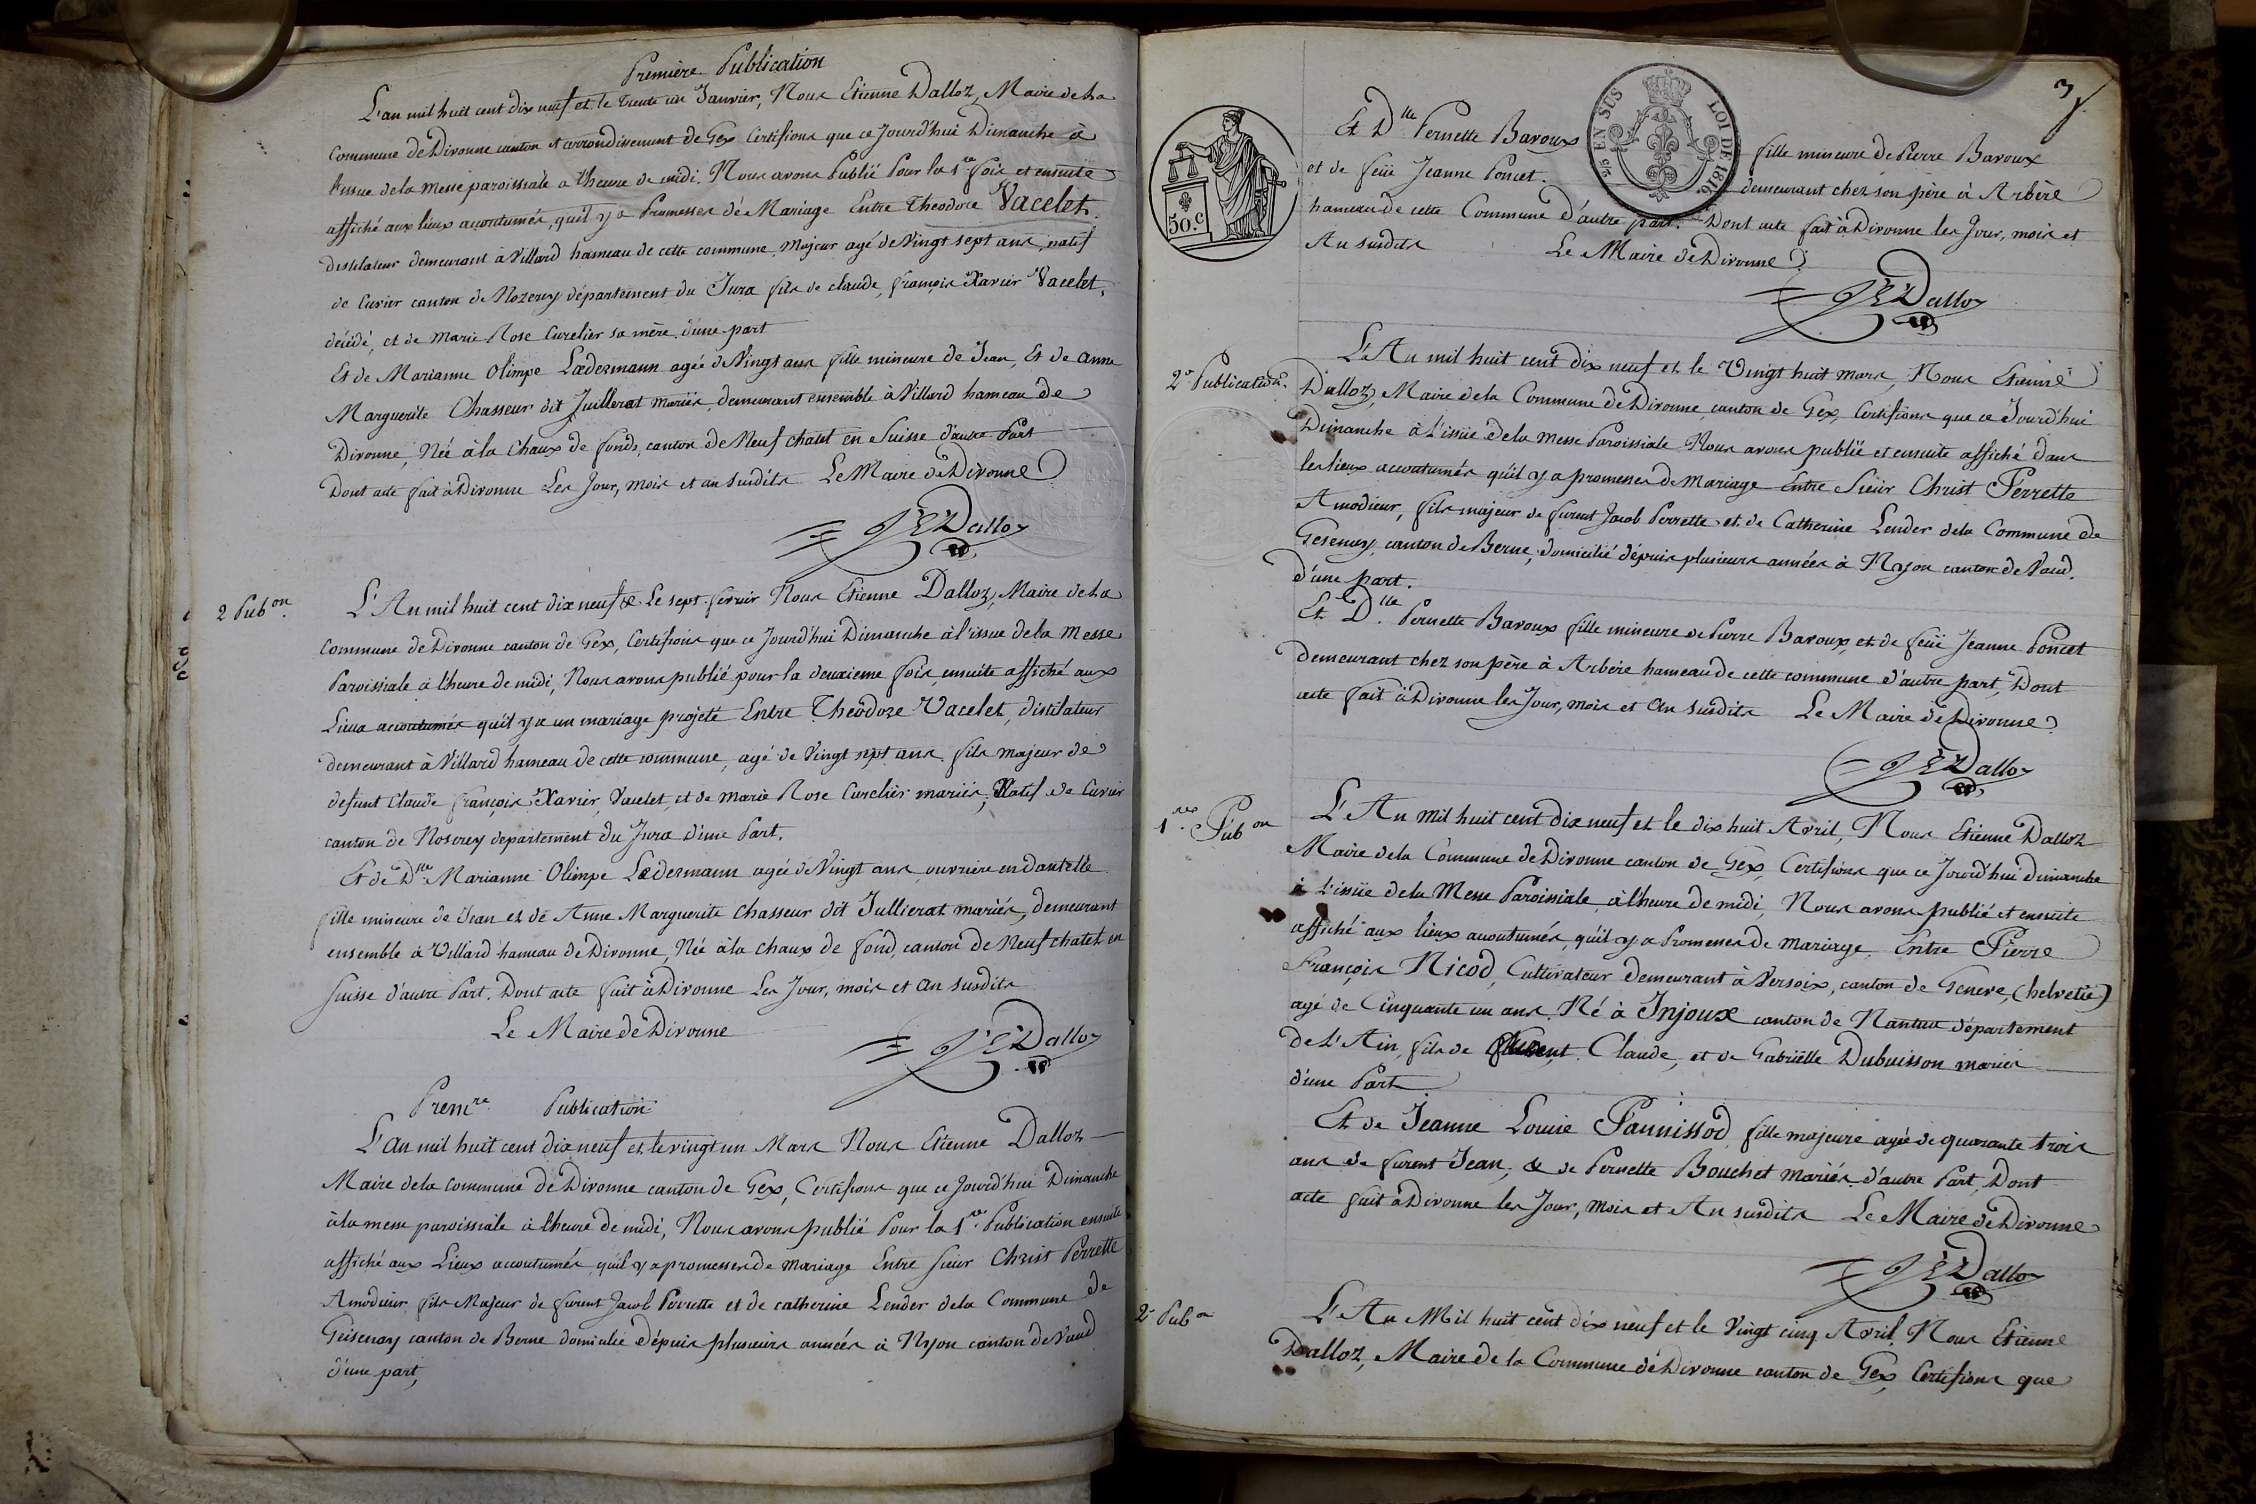 Première Publication
L'an mil huit cent dix neuf et le trente un Janvier, Nous Etienne Dalloz, Maire de la
Commune de Divonne canton et arrondissement de Gex Certifions que ce Jourd'hui Dimanche à
l'issue de la Messe paroissiale a l'heure de midi. Nous avons Publié Pour la 1re fois et ensuite
affiché aux lieux acoutumés, qu'il y a Promesses de Mariage Entre Theodore Vacelet.
distilateur demeurant à Villard hameau de cette commune, Majeur agé de Vingt sept ans, natif
de Cuvier canton de Nozeroy département du Jura fils de claude, françois Xavier Vacelet,
décédé, et de Marie Rose Curelier sa mère d'une part
Et de Marianne Olimpe Lœdermann agée de Vingt ans fille mineure de Jean, Et de anne
Marguerite Chasseur dit Juillerat mariés, demeurant ensemble à Villard hameau de
Divonne, Née à la Chaux de fonds, canton de Neuf chatel en Suisse d'autre Part
Dont acte fait à Divonne Les Jour, mois et an susdits Le Maire de Divonne
J E Dalloz
2 Pubon.
L'An mil huit cent dix neuf & Le sept fevrier Nous Etienne Dalloz, Maire de la
Commune de Divonne canton de Gex, Certifions que ce Jourd'hui Dimanche à l'issue de la Messe
Paroissiale à l'heure de midi, Nous avons publié pour la deuxieme fois, ensuite affiché aux
Lieux accoutumés qu'il y a un mariage projeté Entre Theodore Vacelet, distilateur
demeurant à Villard hameau de cette commune, agé de Vingt sept ans, fils majeur de
defunt Claude françois Xavier, Vacelet, et de Marie Rose Curelier mariés, Natif de Cuvier
canton de Noserey departement du Jura d'une Part.
Et de Dlle Marianne Olimpe Lœdermann agée de Vingt ans, ouvriere en dantelle
fille mineure de Jean et de Anne Marguerite Chasseur dit Jullierat mariés, demeurant
ensemble à Villard hameau de Divonne, Née à la chaux de fond, canton de Neuf chatel en
Suisse d'autre Part. Dont acte fait à Divonne Les Jour, mois et an susdits
Le Maire de Divonne
J E Dalloz
Premre Publication
L'An mil huit cent dix neuf et le vingt un Mars Nous Etienne Dalloz
Maire de la commune de Divonne canton de Gex, Certifions que ce Jourd'hui Dimanche
à la messe paroissiale à l'heure de midi, Nous avons publié Pour la 1re Publication ensuite
affiché aux Lieux accoutumés, qu'il y a promesses de Mariage Entre Sieur Christ Perrette
Amodieur fils Majeur de furent Jacob Perrette et de catherine Lender de la Commune de
Geisenay canton de Berne domicilié dépuis plusieurs années à Nyon canton de Vaud
d'une part,
3
50.C
25 EN SUS
LOI DE 1816
Et Dlle Pernette Baroux fille mineure de Pierre Baroux
et de feüe Jeanne Poncet. demeurant chez son père à Arbère
hameau de cette Commune d'autre part. Dont acte fait à Divonne les Jour, mois et
An susdits Le Maire de Divonne
J E Dalloz
2e Publication.
L'An mil huit cent dix neuf et le Vingt huit mars, Nous Etienne
Dalloz, Maire de la Commune de Divonne, canton de Gex, Certifions que ce Jourd'hui
Dimanche à l'issüe de la Messe Paroissiale Nous avons publié et ensuite affiché dans
les lieux accoutumés qu'il y a promesses de Mariage Entre Sieür Christ Perrette
Amodieur, fils majeur de furent Jacob Perrette et de Catherine Lender de la Commune de
Gesenay, canton de Berne, domicilié dépuis plusieurs années à Nyon canton de Vaud.
d'une part.
Et Dlle Pernette Baroux fille mineure de Pierre Baroux, et de feüe Jeanne Poncet
demeurant chez son père à Arbère hameau de cette commune d'autre part, Dont
acte fait à Divonne les Jour, mois et An susdits Le Maire de Divonne
J E Dalloz
1re Pubon
L'An mil huit cent dix neuf et le dix huit Avril, Nous Etienne Dalloz
Maire de la Commune de Divonne canton de Gex, Certifions que ce Jourd'hui dimanche
à l'issüe de la Messe Paroissiale à l'heure de midi, Nous avons publié et ensuite
affiché aux lieux acoutumés, qu'il y a Promesses de Mariage Entre Pierre
François Nicod, Cultivateur demeurant à Versoix, canton de Geneve, (helvetie)
agé de Cinquante un ans. Né à Injoux canton de Nantua département
de L'Ain, fils de furent Claude, et de Gabrielle Dubuisson mariés
d'une Part
Et de Jeanne Louise Pannissod, fille majeure agée de quarante trois
ans de furent Jean, & de Pernette Bouchet mariés, d'autre Part, Dont
acte fait à Divonne les Jour, Mois et An susdits Le Maire de Divonne
J E Dalloz
2e Pubon
L'An Mil huit cent dix neuf et le Vingt cinq Avril Nous Etienne
Dalloz, Maire de la Commune de Divonne canton de Gex, Certifions que